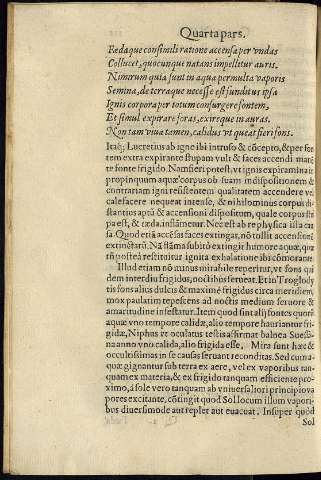 Quarta pars.
Tædaque consimili ratione accensa per vndas
Collucet, quocunque natans impellitur auris.
Nimirum quia sunt in aqua permulta vaporis
Semina, de terraque necesse est funditus ipsa
Ignis corpora per totum consurgere fontem,
Et simul expirare foras, exireque in auras.
Non tam viua tamen, calidus vt queat fieri fons.
Itaq; Lucretius ab igne ibi intruso & cōcepto, & per fon
tem extra expirante stupam vult & faces accendi manē
te fonte frigido. Nam fieri potest, vt ignis expirans in
propinquum aquæ corpus ob suam indispositionem &
contrariam igni resistentem qualitatem accendere vel
calefacere nequeat intensè, & nihilominus corpus di-
stantius aptū & accensioni dispositum, quale corpus stu
pa est, & tæda, inflāmet. Nec est ab re physica ista cau
sa. Quod etiā accēsas faces extingat, nō tollit accensionē
extinctarū. Nā flāma subitò extingit humore aquæ, quæ
tñ posteà restituitur ignita exhalatione ibi cōmorante.
Illud etiam nō minus mirabile reperitur, vt fons qui
dem interdiu frigidus, noctibus ferueat. Et in Troglody
tis fons salius dulcis & maximè frigidus circa meridiem,
mox paulatim tepescens ad noctis medium feruore &
amaritudine infestatur. Item quod sint alij fontes quorū
aquæ vno tempore calidæ, alio tempore hauriantur fri-
gidæ, Niphus vt oculatus testis affirmat balnea Sues-
na anno vno calida, alio frigida esse. Mira sunt hæc &
occultissimas in se causas seruant reconditas. Sed cum a-
quæ gignantur sub terra ex aere, vel ex vaporibus tan-
quam ex materia, & ex frigido tanquam efficiente pro-
ximo, à sole vero tanquam ab vniuersaliori principio va
pores excitante, cōtingit quod Sol locum illum vapori-
bus diuersimodè aut replet aut euacuat. Insuper quòd
Sol